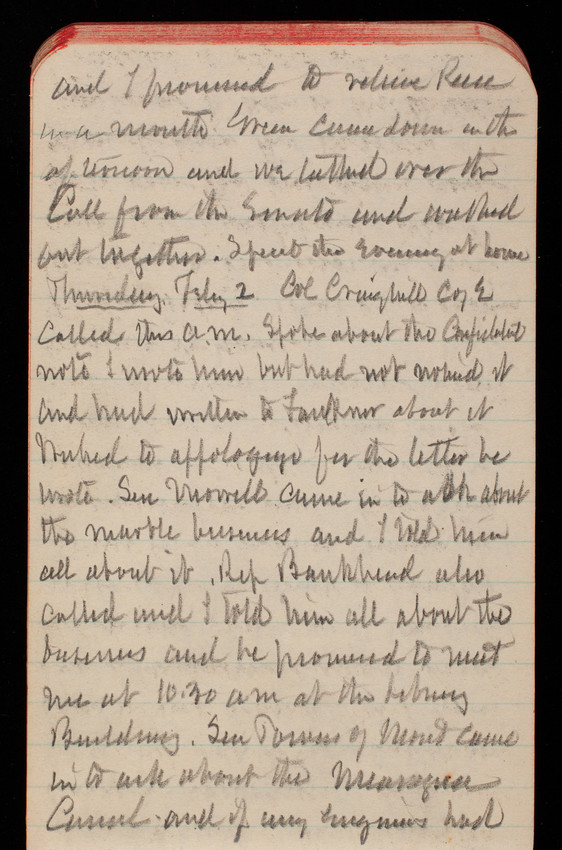 and I promised to relieve Reese
in a month Green came down in the
afternoon and we talked over the
Call from the Senate and walked
out together. Spent the evening at home
Thursday, Feby 2 Col Craighill C of E
called this a.m. Spoke about the Confidential
note I wrote him but had not noticed it
and had written to Faulkner about it
Wished to appologize for the letter he
wrote. Sen Morrill came in to ask about
the marble business and I told him
all about it. Rep Bankhead also
called and I told him all about the
business and he promised to meet
me at 10:30 am at the Library
Building. Sen Power of Mont came
in to ask about the Nicaragua
Canal and if any Engineers had